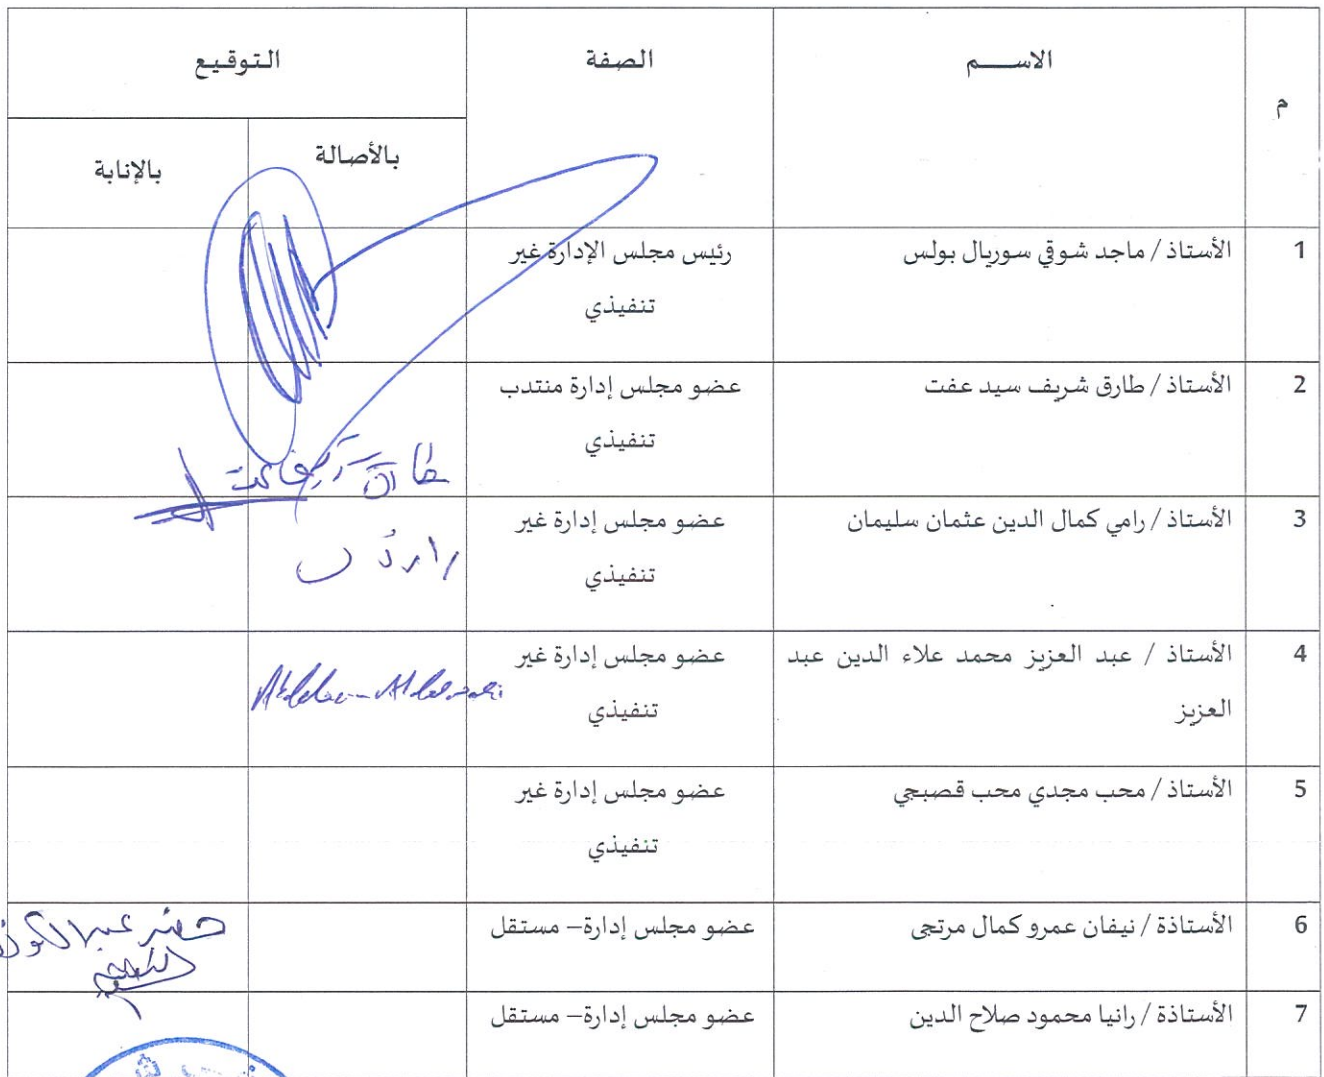 م
الاســـم
الصفة
التوقيع
بالأصالة
بالإنابة
1
الأستاذ / ماجد شوقي سوريال بولس
رئيس مجلس الإدارة غير
تنفيذي
2
الأستاذ / طارق شريف سيد عفت
عضو مجلس إدارة منتدب
تنفيذي
3
الأستاذ / رامي كمال الدين عثمان سليمان
عضو مجلس إدارة غير
تنفيذي
4
الأستاذ / عبد العزيز محمد علاء الدين عبد
العزيز
عضو مجلس إدارة غير
تنفيذي
5
الأستاذ / محب مجدي محب قصبجي
عضو مجلس إدارة غير
تنفيذي
6
الأستاذة / نيفان عمرو كمال مرتجى
عضو مجلس إدارة– مستقل
7
الأستاذة / رانيا محمود صلاح الدين
عضو مجلس إدارة– مستقل